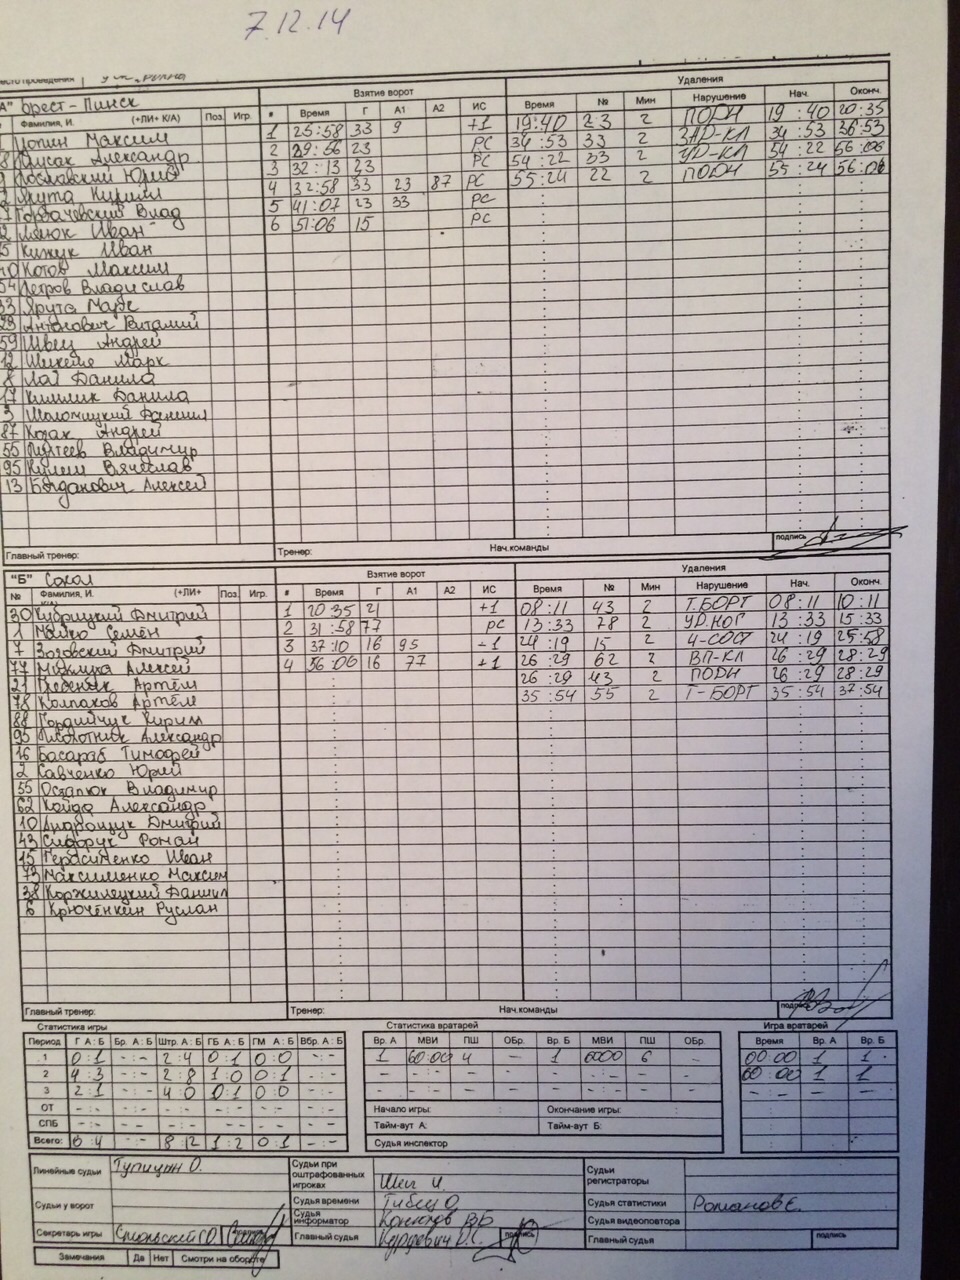 7.12.14
Удаления
"А" Брест-Пинск
Взятие ворот
Фамилия, И. (+ЛИ+ К/А) Поз. Игр. # Время Г А1 А2 ИС Время № Мин Нарушение Нач. Оконч.
Максим 1 25:58 33 9 +1 19:40 23 2 ПОДН 19:40 20:35
Александр 2 29:56 23 РС 34:53 33 2 ЗАД-КЛ 34:53 36:53
Юрий 3 32:13 23 РС 54:22 33 2 УД-КЛ 54:22 56:06
Якута Кирилл 4 32:58 33 23 87 РС 55:24 22 2 ПОДН 55:24 56:06
Горбачевский Влад 5 41:07 23 33 РС
Иван 6 51:06 15 РС
Кижук Иван
Котов Максим
54 Петров Владислав
33 Ярута Марк
23 Антонович Виталий
59 Швец Андрей
12 Шекеля Марк
8 Лат Данила
17 Кимлик Данила
3 Шаломицкий Даниил
87 Козак Андрей
55 Владимир
95 Кулеш Вячеслав
13 Богданович Алексей
Главный тренер: Тренер: Нач.команды подпись
"Б" Сокол
Взятие ворот Удаления
№ Фамилия, И. (+ЛИ+ К/А) Поз. Игр. # Время Г А1 А2 ИС Время № Мин Нарушение Нач. Оконч.
30 Кубрицкий Дмитрий 1 20:35 21 +1 08:11 43 2 Т.БОРТ 08:11 10:11
1 Майко Семён 2 31:58 77 РС 13:33 78 2 УД.НОГ 13:33 15:33
7 Зоговский Дмитрий 3 37:10 16 95 -1 24:19 15 2 Ч-СОСТ 24:19 25:58
77 Алексей 4 56:06 16 77 +1 26:29 62 2 ВП-КЛ 26:29 28:29
21 Артём 26:29 43 2 ПОДН 26:29 28:29
78 Колпаков Артём 35:54 55 2 Т-БОРТ 35:54 37:54
88 Гордийчук Кирилл
95 Александр
16 Басараб Тимофей
2 Савченко Юрий
55 Остапюк Владимир
62 Койда Александр
10 Андрощук Дмитрий
43 Сидорук Роман
15 Герасименко Иван
73 Максименко Максим
38 Коржилецкий Даниил
6 Крючёнкин Руслан
Главный тренер: Тренер: Нач.команды подпись
Статистика игры Статистика вратарей Игра вратарей
Период Г А:Б Бр. А:Б Штр. А:Б ГБ А:Б ГМ А:Б Вбр. А:Б Вр. А МВИ ПШ ОБр. Вр. Б МВИ ПШ ОБр. Время Вр. А Вр. Б
1 0:1 -:- 2:4 0:1 0:0 -:- 1 60:00 4 - 1 6000 6 - 00:00 1 1
2 4:3 -:- 2:8 1:0 0:1 -:- 60:00 1 1
3 2:1 -:- 4:0 0:1 0:0 -:-
ОТ -:- -:- -:- -:- -:- -:- Начало игры: Окончание игры:
СПБ Тайм-аут А: Тайм-аут Б:
Всего: 6:4 -:- 8:12 1:2 0:1 -:- Судья инспектор
Линейные судьи Тупицын О. Судьи при оштрафованных игроках Шег И. Судьи регистраторы
Судьи у ворот Судья времени Гибец О. Судья статистики Романов Е.
Судья информатор В.Б Судья видеоповтора
Секретарь игры подпись Главный судья подпись Главный судья подпись
Замечания Да Нет Смотри на обороте